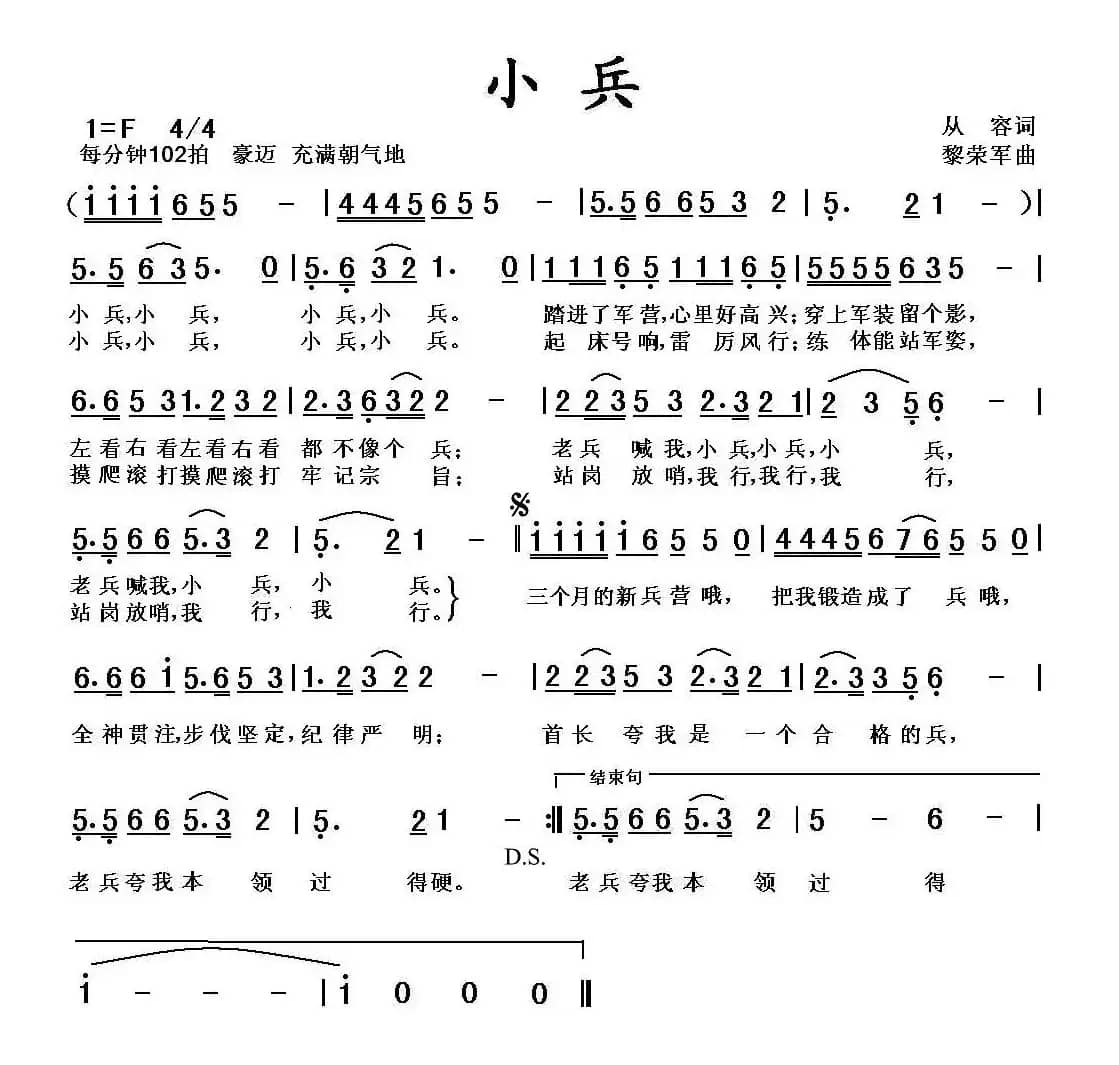 小 兵
1=F 4/4
从 容词
每分钟102拍 豪迈 充满朝气地
黎荣军曲
(i i i i 6 5 5 5 - | 4 4 4 5 6 5 5 5 - | 5. 5 6 6 5 3 2 | 5. 2 1 - )|
5. 5 6 3 5. 0 | 5. 6 3 2 1. 0 | 1 1 1 6 5 1 1 1 6 5 | 5 5 5 5 6 3 5 - |
小 兵,小 兵, 小 兵,小 兵。 踏进了军营,心里好高兴;穿上军装留个影,
小 兵,小 兵, 小 兵,小 兵。 起 床号响,雷 厉风行;练 体能站军姿,
6. 6 5 3 1. 2 3 2 | 2. 3 6 3 2 2 - | 2 2 3 5 3 2. 3 2 1 | 2 3 5 6 - |
左看右看左看右看 都不像个 兵; 老兵 喊我,小兵,小兵,小 兵,
摸爬滚打摸爬滚打 牢记宗 旨; 站岗 放哨,我行,我行,我 行,
5. 5 6 6 5. 3 2 | 5. 2 1 - ‖ i i i i i 6 5 5 0 | 4 4 4 5 6 7 6 5 5 0 |
老兵喊我,小 兵, 小 兵。}
三个月的新兵营哦, 把我锻造成了 兵哦,
站岗放哨,我 行, 我 行。
6. 6 6 i 5. 6 5 3 | 1. 2 3 2 2 - | 2 2 3 5 3 2. 3 2 1 | 2. 3 3 5 6 - |
全神贯注,步伐坚定,纪律严 明; 首长 夸我是 一个合 格的兵,
结束句
5. 5 6 6 5. 3 2 | 5. 2 1 - :‖ 5. 5 6 6 5. 3 2 | 5 - 6 - |
D.S.
老兵夸我本 领 过 得硬。 老兵夸我本 领 过 得
i - - - | i 0 0 0 ‖